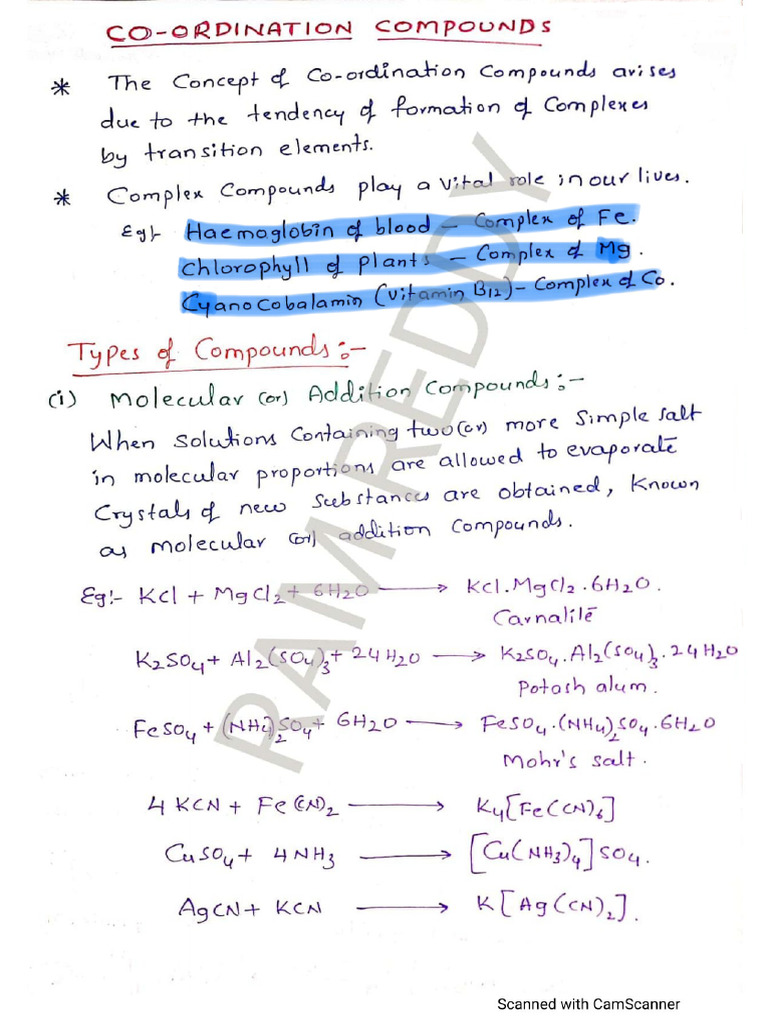 CO-ORDINATION COMPOUNDS
* The Concept of Co-ordination Compounds arises
due to the tendency of formation of Complexes
by transition elements.
* Complex Compounds play a vital role in our lives.
Eg:- Haemaglobin of blood - Complex of Fe.
Chlorophyll of plants - Complex of Mg.
Cyanocobalamin (vitamin B12) - Complex of Co.
Types of Compounds:-
(i) Molecular (or) Addition Compounds:-
When solutions Containing two (or) more Simple salt
in molecular proportions are allowed to evaporate
Crystals of new Substances are obtained, Known
as molecular (or) addition Compounds.
Eg:- KCl + MgCl2 + 6H2O → KCl.MgCl2.6H2O.
Carnalite
K2SO4 + Al2(SO4)3 + 24H2O → K2SO4.Al2(SO4)3.24H2O
Potash alum.
FeSO4 + (NH4)2SO4 + 6H2O → FeSO4.(NH4)2SO4.6H2O
Mohr's salt.
4KCN + Fe(CN)2 → K4[Fe(CN)6]
CuSO4 + 4NH3 → [Cu(NH3)4]SO4.
AgCN + KCN → K[Ag(CN)2].
RAM REDDY
Scanned with CamScanner